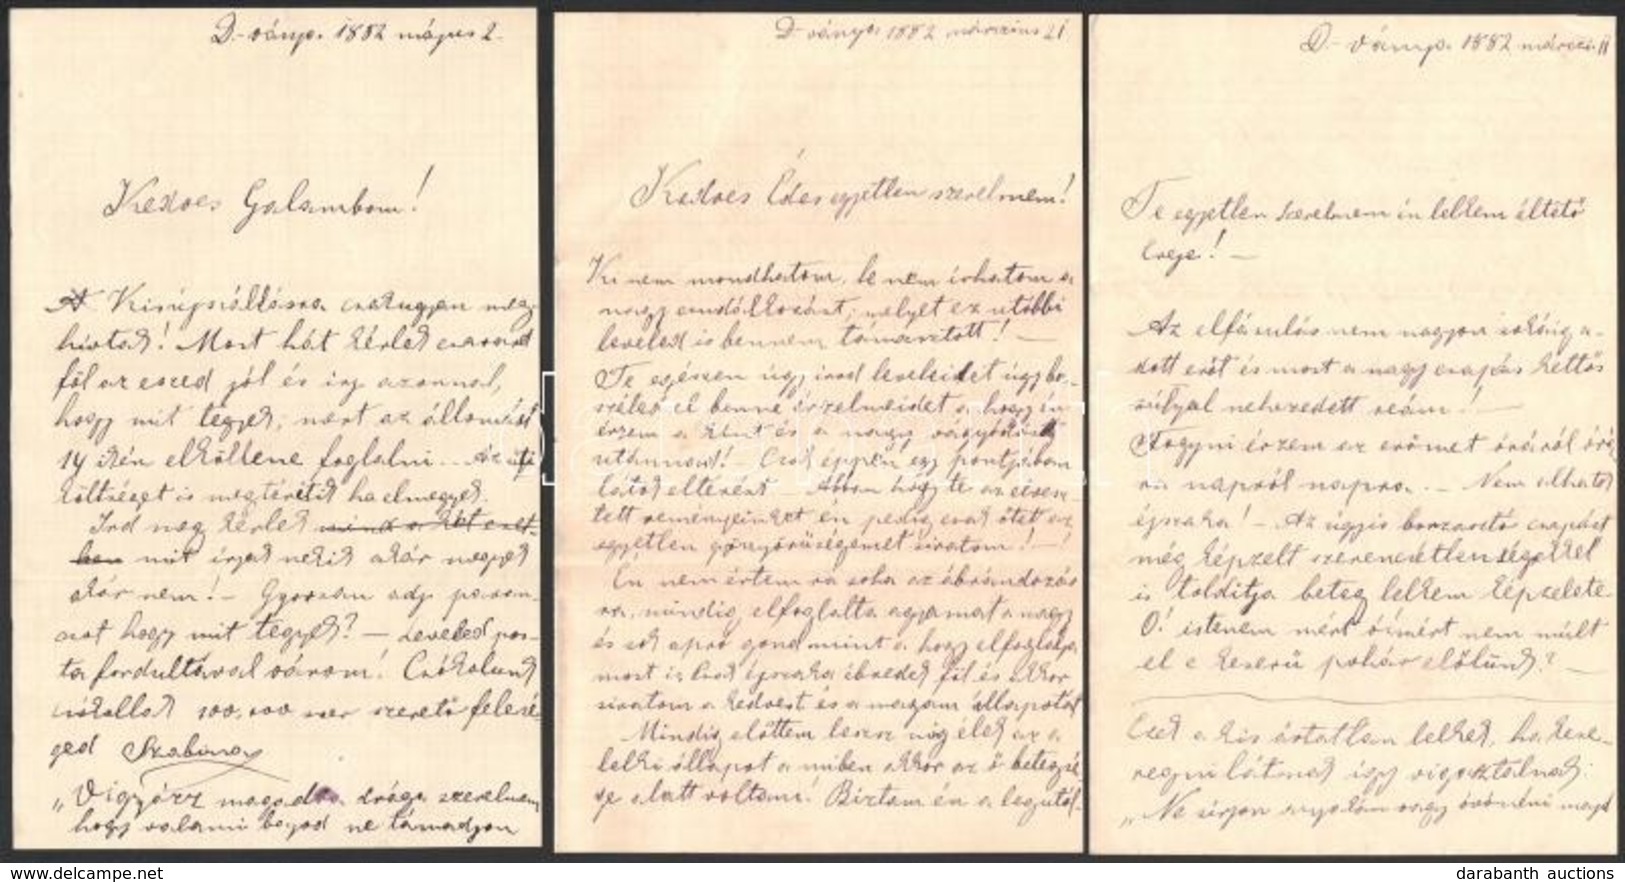 D-ványa. 1882 május 2.
Kedves Galambom!
A Kisújszállásra csakugyan meg-
hívtak! Most hát kérlek csavard
föl az eszed jól és írj azonnal,
hogy mit tegyek, mert az állomást
14 ikén el kellene foglalni. Az úti
költséget is megtérítik ha elmegyek.
Írd meg kérlek mind a két eset-
ben mit írjak nekik akár megyek
akár nem! - Gyorsan adj paran-
csot hogy mit tegyek? - Leveled pos-
ta fordultával várom! Csókolunk
100,000 szer szerető felesé-
ged Szabina
"Vigyázz magadra drága szerelmem
hogy valami bajod ne támadjon
D-ványa. 1882 márczius 21
Kedves Édes egyetlen szerelmem!
Ki nem mondhatom, le nem írhatom a
nagy csudálkozást, melyet ez utóbbi
leveled is bennem támasztott! -
Te egészen úgy írod leveleidet úgy be-
széled el benne érzelmeidet a hogy én
érzem a kínt és a nagy vágyódást
utánnad! - Csak éppen egy pontjában
látok eltérést - Abban hogy te az elvesz-
tett reményeinket én pedig csak őtet az
egyetlen gyönyörűségemet siratom! -!
Én nem értem rá soha az ábrándozás
ra, mindig elfoglalta agyamat a nagy
és sok apró gond mint a hogy elfoglalja
most is csak éjszaka ébredek föl és akkor
siratom a kedvest és a magam állapotát
Mindig előttem lessz míg élek az a
lelki állapot a miben akkor az ő betegsé-
ge alatt voltam! Bíztam én a legutól-
D-ványa. 1882 márczi. 11
Te egyetlen szerelmem én lelkem éltető
ereje! -
Az elfásulás nem nagyon sokáig a-
dott erőt és most a nagy csapás kettős
súlyal nehezedett reám! -
Fogyni érzem az erőmet óráról órá
ra napról napra. - Nem alhatok
éjszaka! - Az úgyis borzasztó csapást
még képzelt szerencsétlenségekkel
is toldítja beteg lelkem képzelete
O! istenem mért ó mért nem múlt
el e keserű pohár előlünk? -
Ezek a kis ártatlan lelkek, ha kese-
regni látnak így vigasztalnak:
"Ne sírjon anyolám vagy óvónéni majd
darabanth auctions